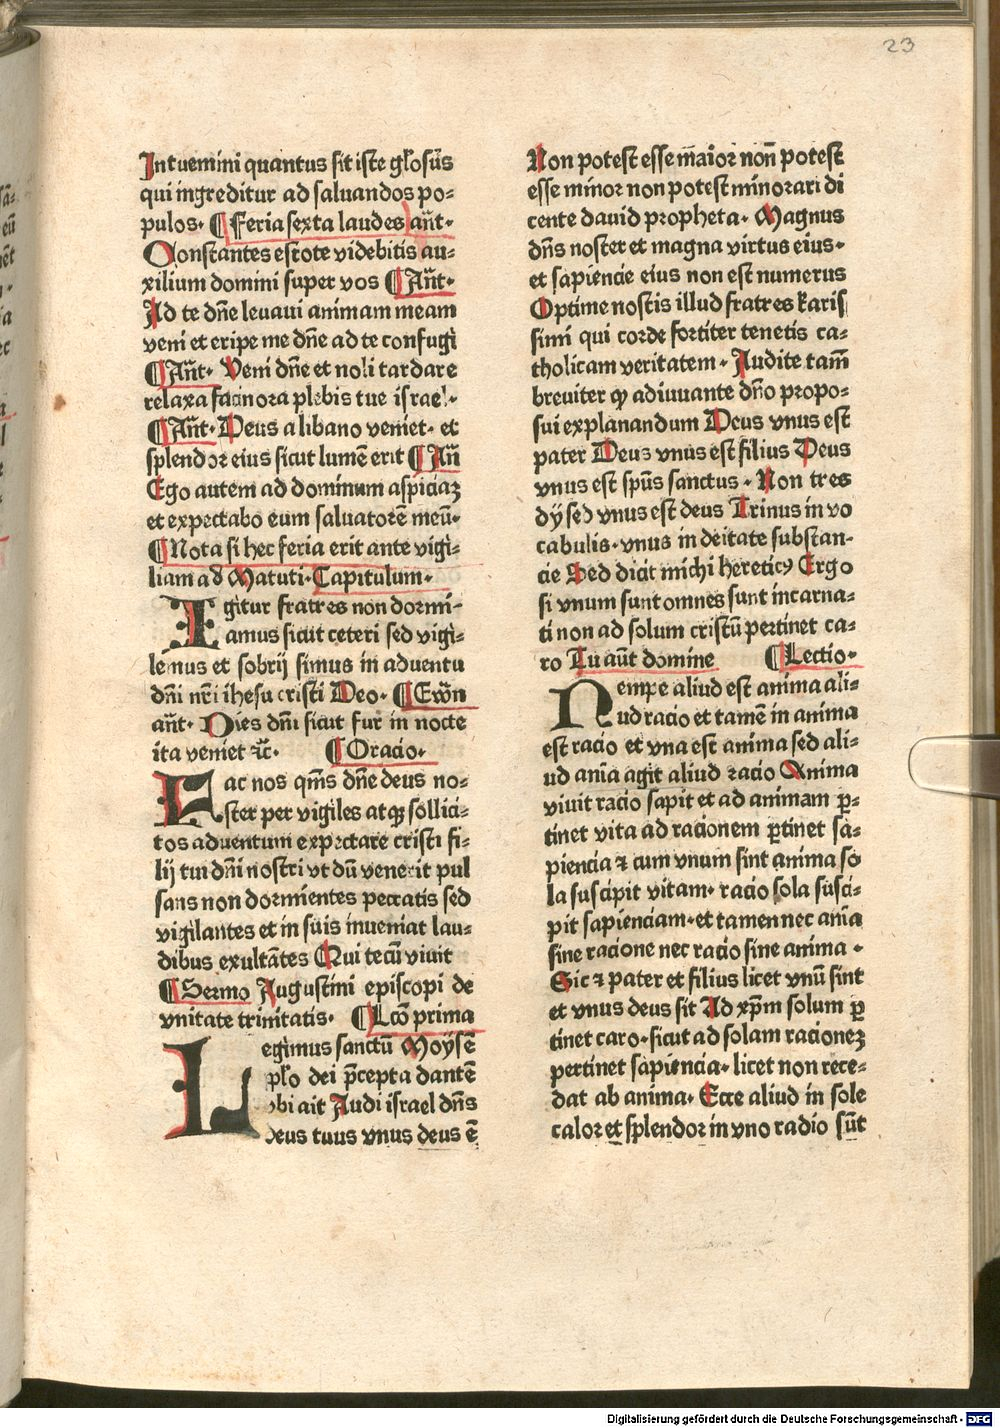 23
Intuemini quantus sit iste gl'osus̄
qui ingreditur ad saluandos po⸗
pulos· ¶ Feria sexta laudes an̄t·
Constantes estote videbitis au⸗
xilium domini super vos ¶ An̄t·
Ad te dn̄e leuaui animam meam
veni et eripe me dn̄e ad te confugi
¶ An̄t· Veni dn̄e et noli tardare
relaxa facinora plebis tue israel·
¶ An̄t· Deus a libano veniet· et
splendor eius sicut lumē erit ¶ An̄
Ego autem ad dominum aspiciaꝫ
et expectabo eum saluatorē meū·
¶ Nota si hec feria erit ante vigi⸗
liam ad Matuti· Capitulum·
Igitur fratres non dormi⸗
amus sicut ceteri sed vigi⸗
lemus et sobrij simus in aduentu
dn̄i nr̄i ihesu cristi Deo· ¶ Ewn̄
an̄t· Dies dn̄i sicut fur in nocte
ita veniet ⁊c̄· ¶ Oracio·
Fac nos qm̄s dn̄e deus no⸗
ster per vigiles atqꝫ sollici⸗
tos aduentum expectare cristi fi⸗
lij tui dn̄i nostri vt dū venerit pul
sans non dormientes peccatis sed
vigilantes et in suis inueniat lau⸗
dibus exultātes Qui tecū viuit
¶ Sermo Augustini episcopi de
vnitate trinitatis· ¶ Lcō prima
Legimus sanctū Moysē
pl'o dei p̄cepta dantē
vbi ait Audi israel dn̄s
deus tuus vnus deus ē
Non potest esse m̄aior non̄ potest
esse minor non potest minorari di
cente dauid propheta· Magnus
dn̄s noster et magna virtus eius·
et sapiencie eius non est numerus
Optime nostis illud fratres karis
simi qui corde fortiter tenetis ca⸗
tholicam veritatem· Audite tam̄
breuiter ꝙ adiuuante dn̄o propo⸗
sui explanandum Deus vnus est
pater Deus vnus est filius Deus
vnus est spūs sanctus· Non tres
dÿ sed vnus est deus Trinus in vo
cabulis· vnus in deitate substan⸗
cie Sed dicit michi hereticꝰ Ergo
si vnum sunt omnes sunt incarna⸗
ti non ad solum cristū pertinet ca⸗
ro Tu aūt domine ¶ Lectio·
Nempe aliud est anima ali⸗
ud racio et tamē in anima
est racio et vna est anima sed ali⸗
ud ania agit aliud racio Anima
viuit racio sapit et ad animam ꝑ⸗
tinet vita ad racionem ꝑtinet sa⸗
piencia ⁊ cum vnum sint anima so
la suscipit vitam· racio sola susci⸗
pit sapienciam· et tamen nec ania
sine racione nec racio sine anima·
Sic ⁊ pater et filius licet vnū sint
et vnus deus sit Ad xp̄m solum ꝑ
tinet caro· sicut ad solam racioneꝫ
pertinet sapiencia· licet non rece⸗
dat ab anima· Ecce aliud in sole
calor et splendor in vno radio sūt
Digitalisierung gefördert durch die Deutsche Forschungsgemeinschaft - DFG